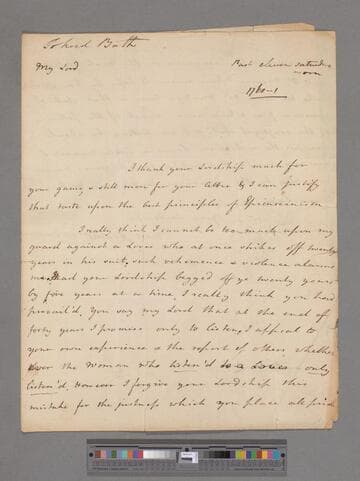 To Lord Bath
My Lord
Past eleven saturday
morn
1760-1
I thank your Lordship much for
your game, & still more for your letter & I can justify
that taste upon the best principles of Epicureanism
I really think I cannot be too much upon my
guard against a Lover who at once strikes off twenty
years in his suit, such vehemence & violence alarms
me, Had your Lordship begged off ye twenty years
by five years at a time, I really think you had
prevail'd, You say my Lord that at the end of
forty years I promise only to listen, I appeal to
your own experience & the report of others, whether
ever the Woman who listen'd to a Lover only
listen'd, However I forgive your Lordship this
mistake for the justness which you place all pride